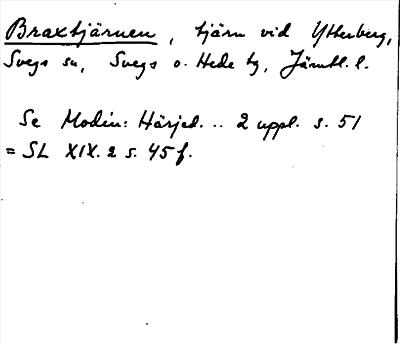 Braxtjärnen, tjärn vid Ytterberg,
Svegs sn, Svegs o. Hede tg, Jämtl. l.
Se Modin: Härjed... 2 uppl. s. 51
= SL XIX. 2 s. 45 f.